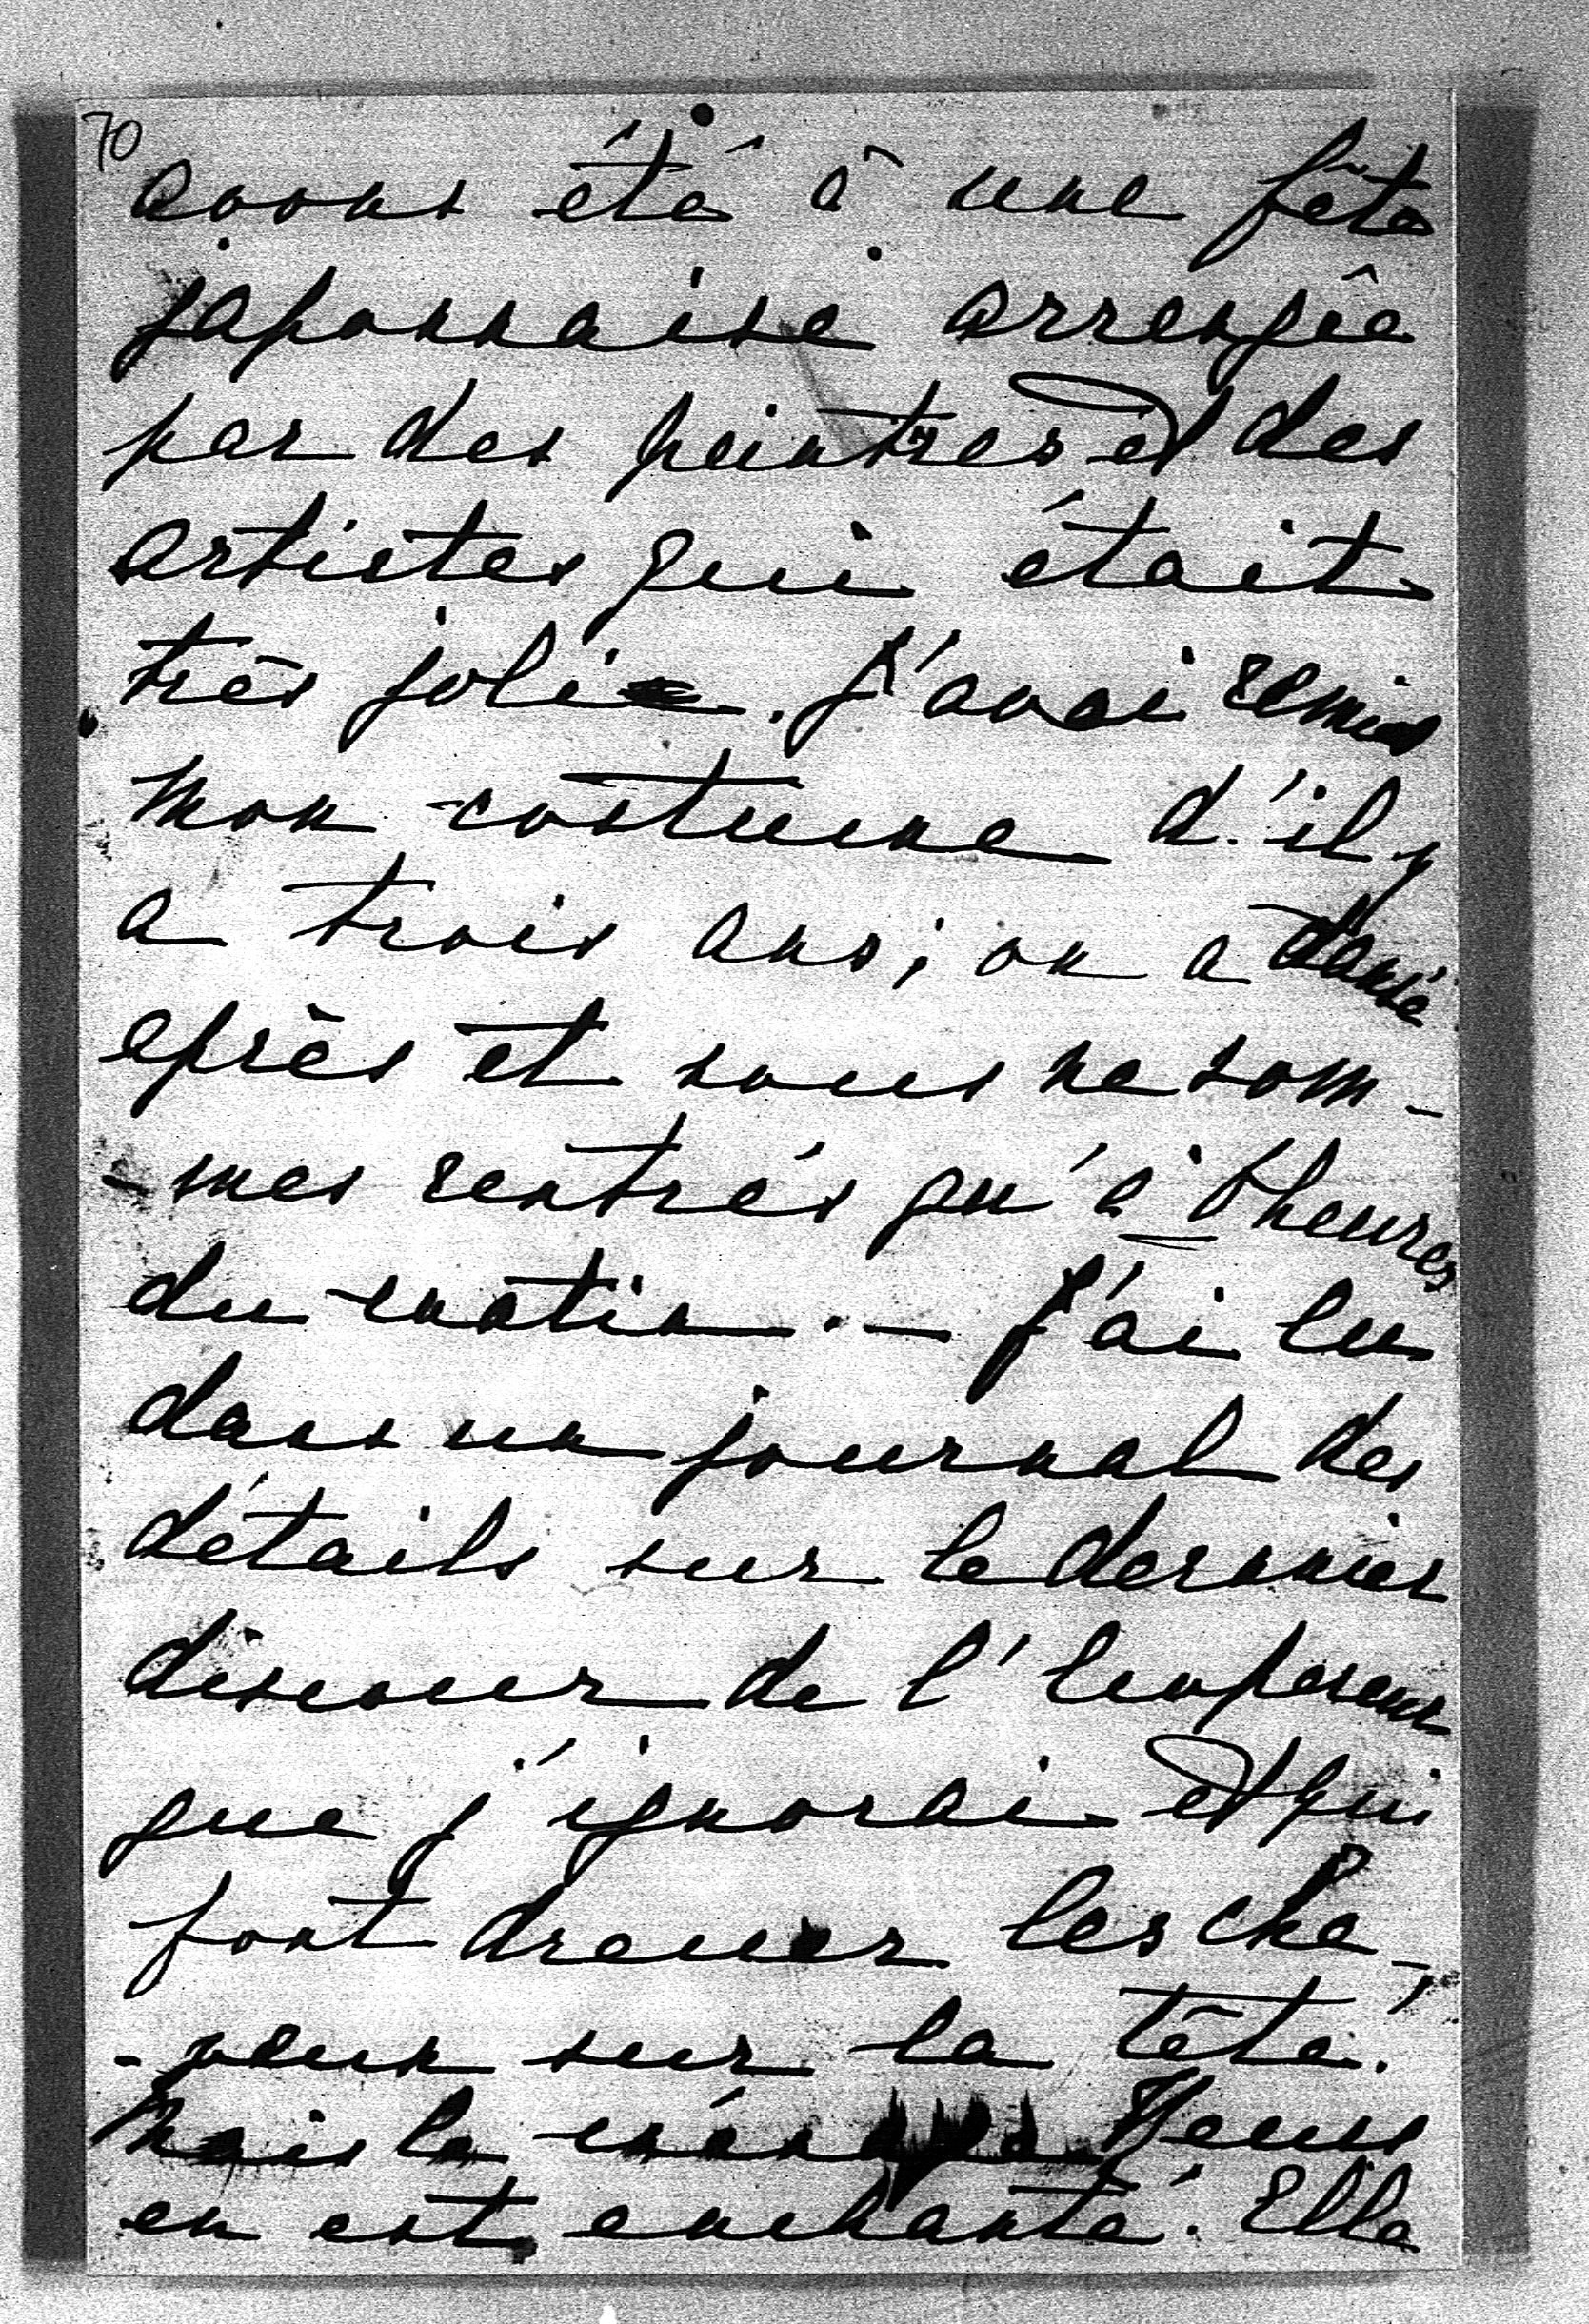 70
avons été à une fête
japonnaise arrengée
par des peintres et des
artistes qui était
très jolie. J'avai remis
mon costume d'il y
a trois ans; on a dansé
après et nous ne som-
-mes rentrés qu'à heures
du matin. — J'ai lu
dans un journal des
détails sur le dernier
discour de l'Empereur
que j'ignorai et qui
font dresser les che-
-veux sur la tête.
Mais le ménage Reuss
en est enchanté. Elle